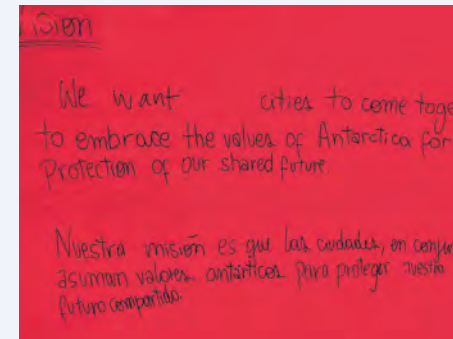 ision
We want cities to come toge
to embrace the values of Antarctica for
Protection of our shared future.
Nuestra misión es que las ciudades, en conjun
asuman valores antárticos para proteger nuestro
futuro compartido.